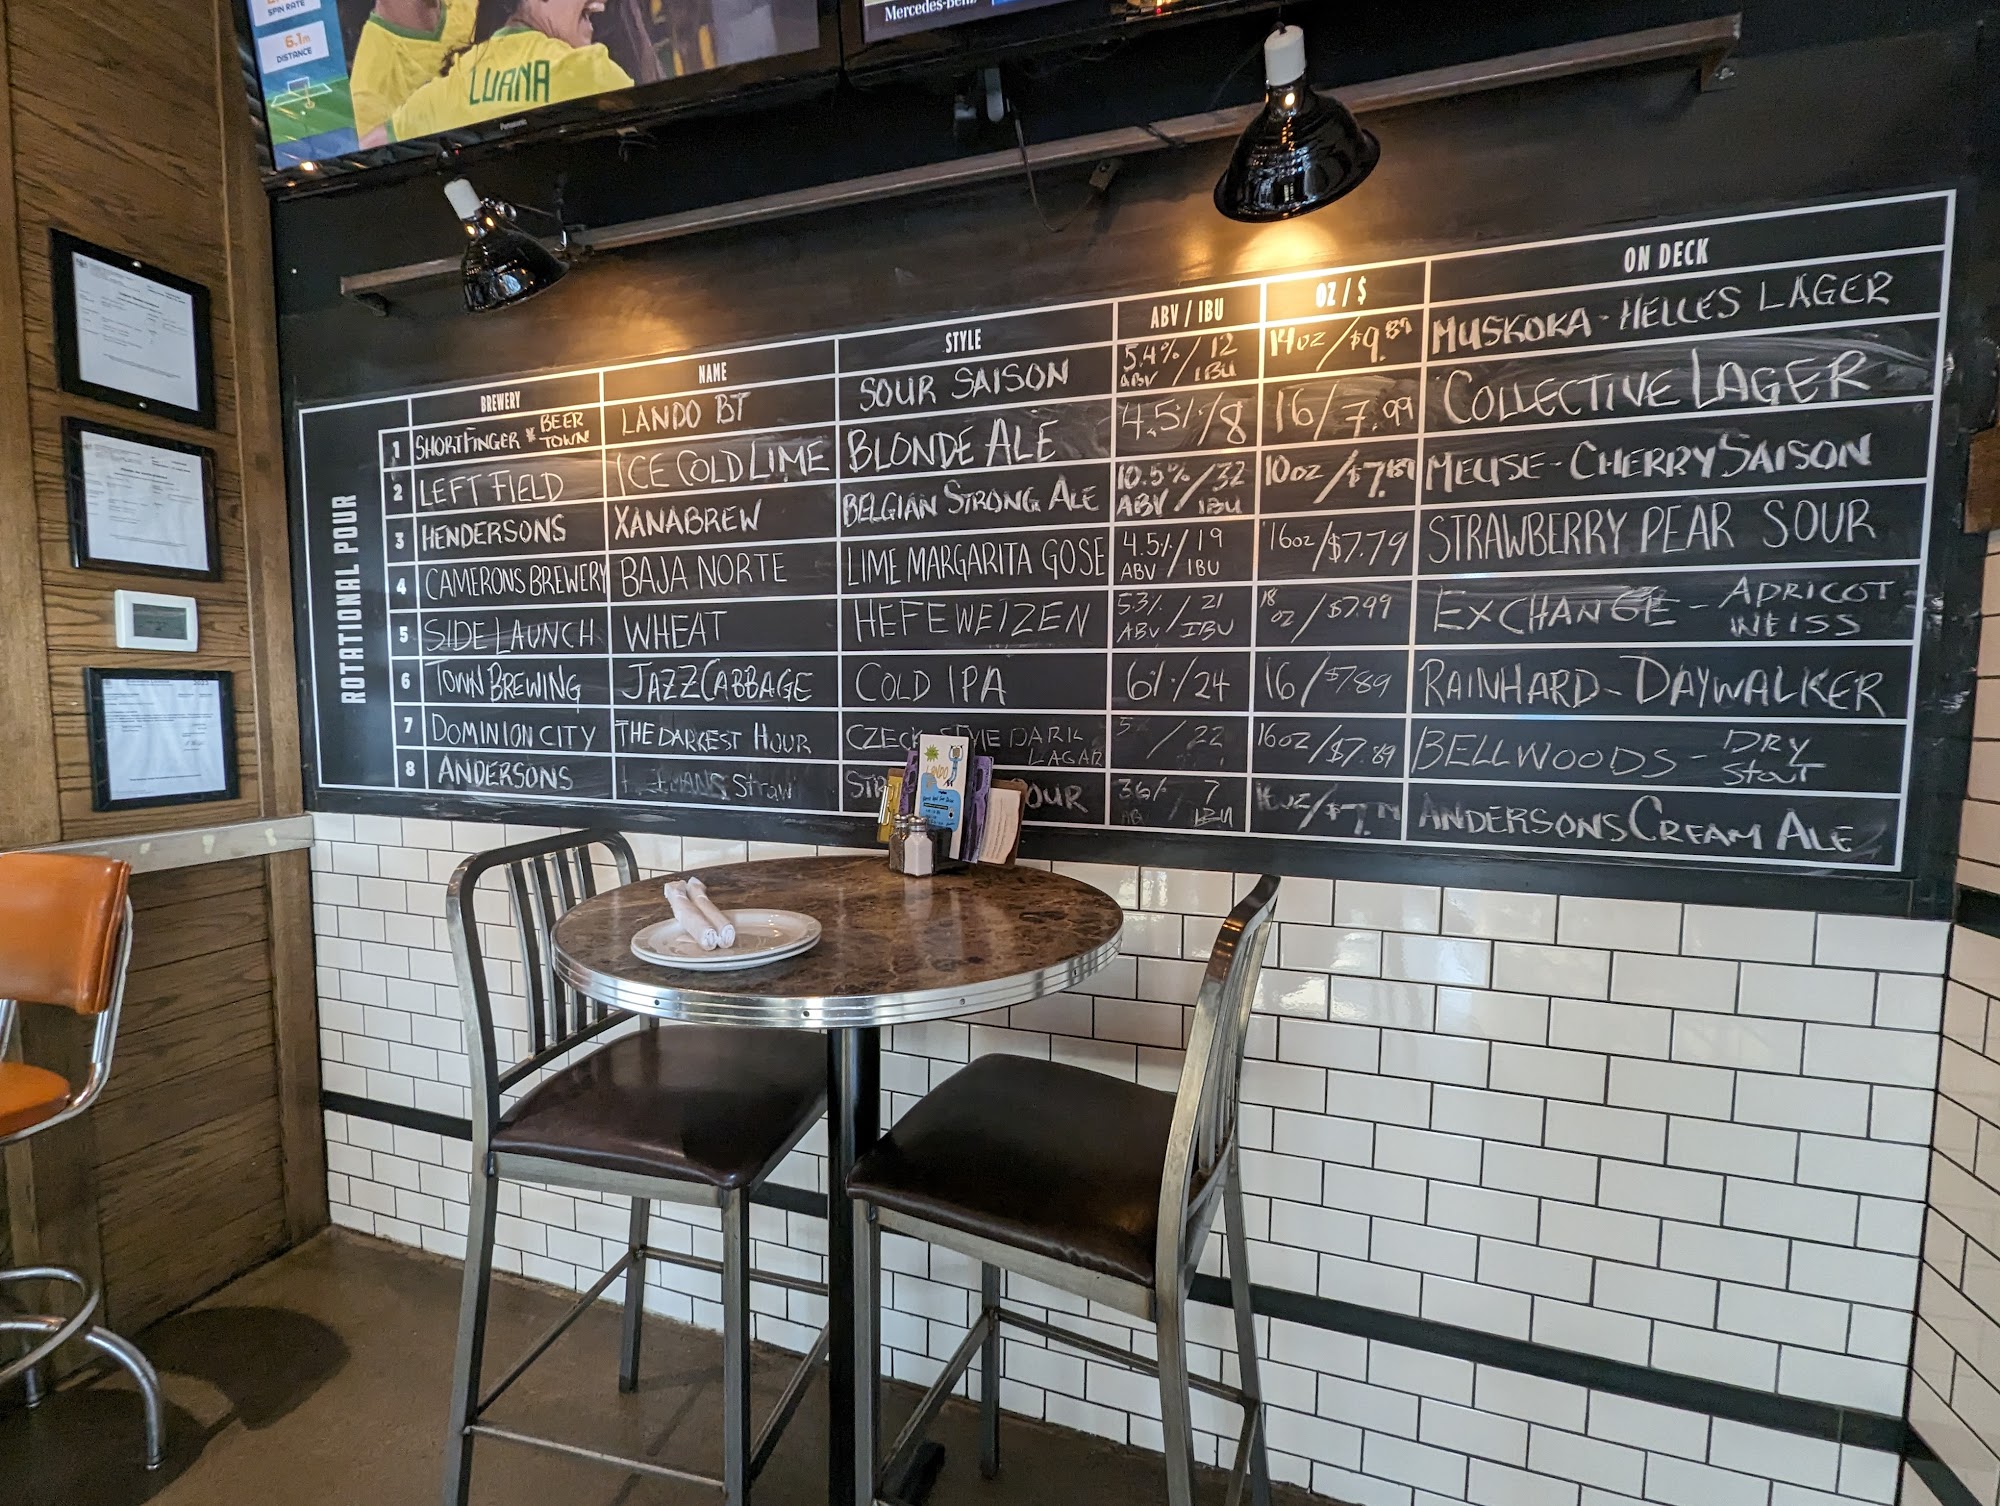 SPIN RATE
6.1m
DISTANCE
LUANA
Panasonic
Mercedes-Benz
ROTATIONAL POUR
BREWERY NAME STYLE ABV / IBU OZ / $ ON DECK
1 SHORTFINGER x BEER TOWN LANDO BT SOUR SAISON 5.4% / 12 ABV / IBU 14oz / $9.89 MUSKOKA - HELLES LAGER
2 LEFT FIELD ICE COLD LIME BLONDE ALE 4.5% / 8 16 / 7.99 COLLECTIVE LAGER
3 HENDERSONS XANABREW BELGIAN STRONG ALE 10.5% / 32 ABV / IBU 10oz / $7.89 MEUSE - CHERRY SAISON
4 CAMERONS BREWERY BAJA NORTE LIME MARGARITA GOSE 4.5% / 19 ABV / IBU 16oz / $7.79 STRAWBERRY PEAR SOUR
5 SIDE LAUNCH WHEAT HEFEWEIZEN 5.3% / 21 ABV / IBU 18 oz / $7.99 EXCHANGE - APRICOT WEISS
6 TOWN BREWING JAZZ CABBAGE COLD IPA 6% / 24 16 / $7.89 RAINHARD - DAYWALKER
7 DOMINION CITY THE DARKEST HOUR CZECH STYLE DARK LAGAR 5 / 22 16oz / $7.89 BELLWOODS - DRY Stout
8 ANDERSONS Straw 7 IBU ANDERSONS CREAM ALE
LANDO